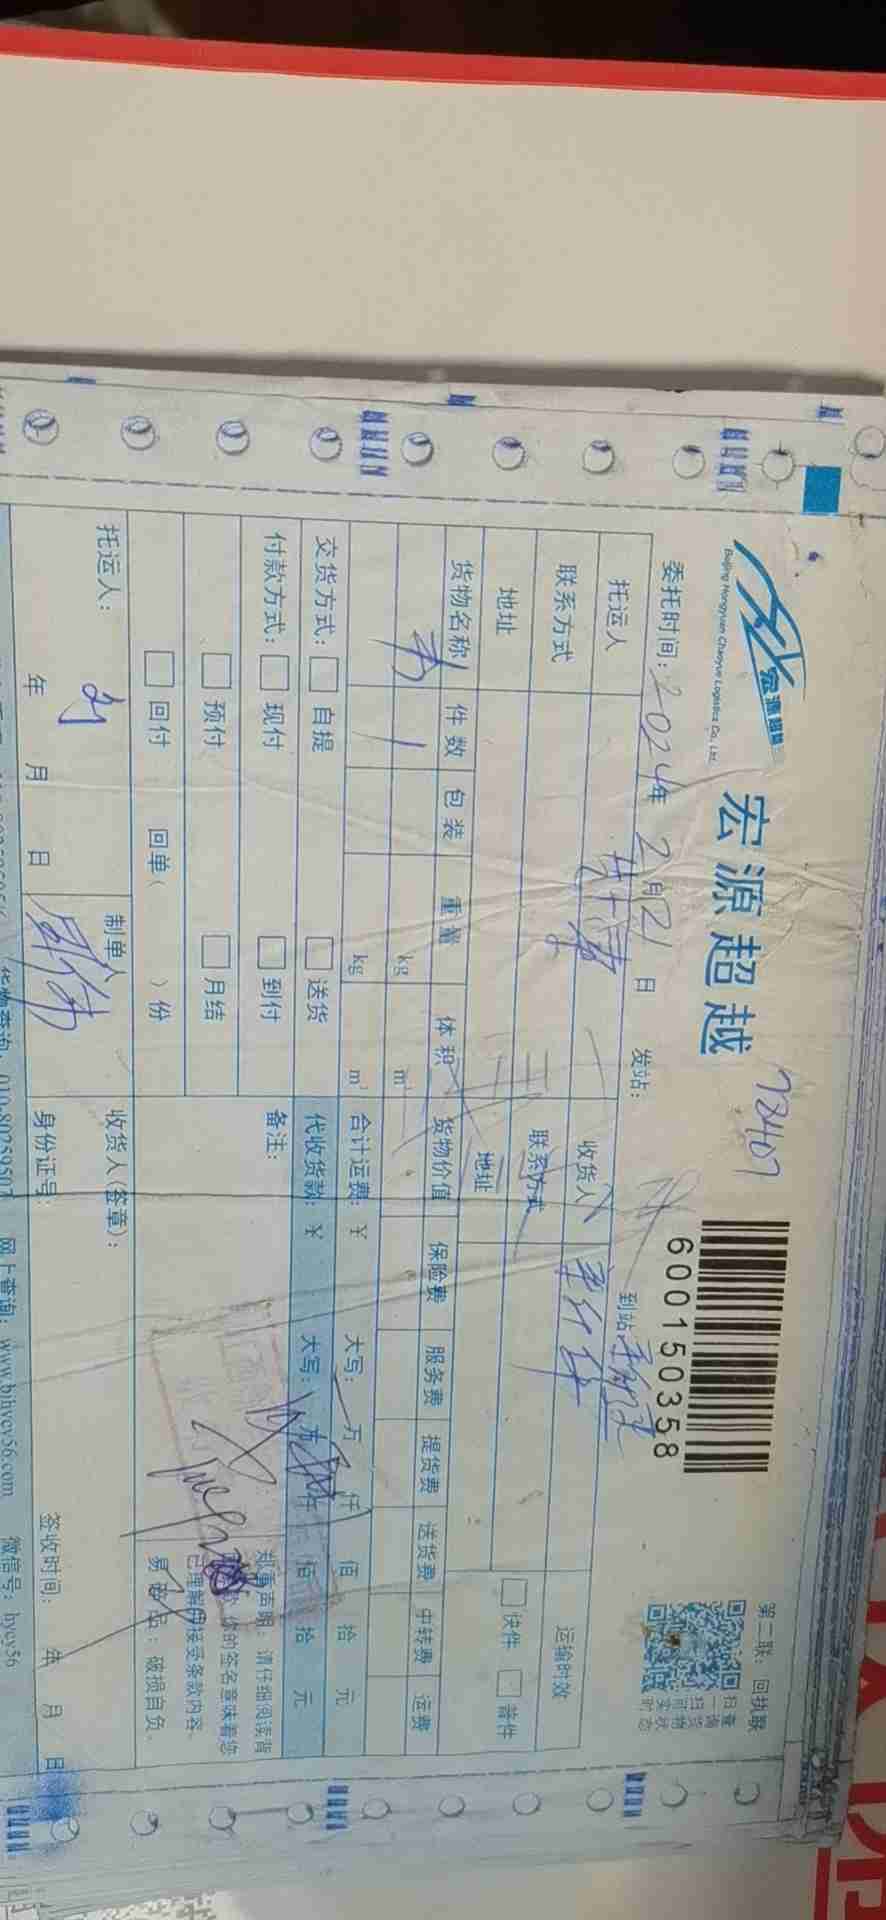 宏源超越
Beijing Hongyuan Chaoyue Logistics Co., Ltd.
宏源超越
72407
600150358
第二联：回执联
扫一扫
查询货物实时状态
委托时间：2024年2月21日 发站： 到站
托运人 收货人
联系方式 联系方式
地址 地址
运输时效
快件 普件
货物名称 件数 包装 重量 体积 货物价值 保险费 服务费 提货费 送货费 中转费 运费
1 kg m³
kg m³
合计运费：¥ 大写： 万 仟 佰 拾 元
交货方式： 自提 送货
代收货款：¥ 大写： 万 仟 佰 拾 元
付款方式： 现付 到付
备注：
预付 月结
回付 回单（ ）份
郑重声明：请仔细阅读背
您的签名意味着您
已理解并接受条款内容。
易碎品：破损自负。
托运人：刘
年 月 日
制单人
收货人(签章)：
身份证号：
签收时间： 年 月 日
货物查询：010-80259507 网上查询：www.bjhycy56.com 微信号：hycy56